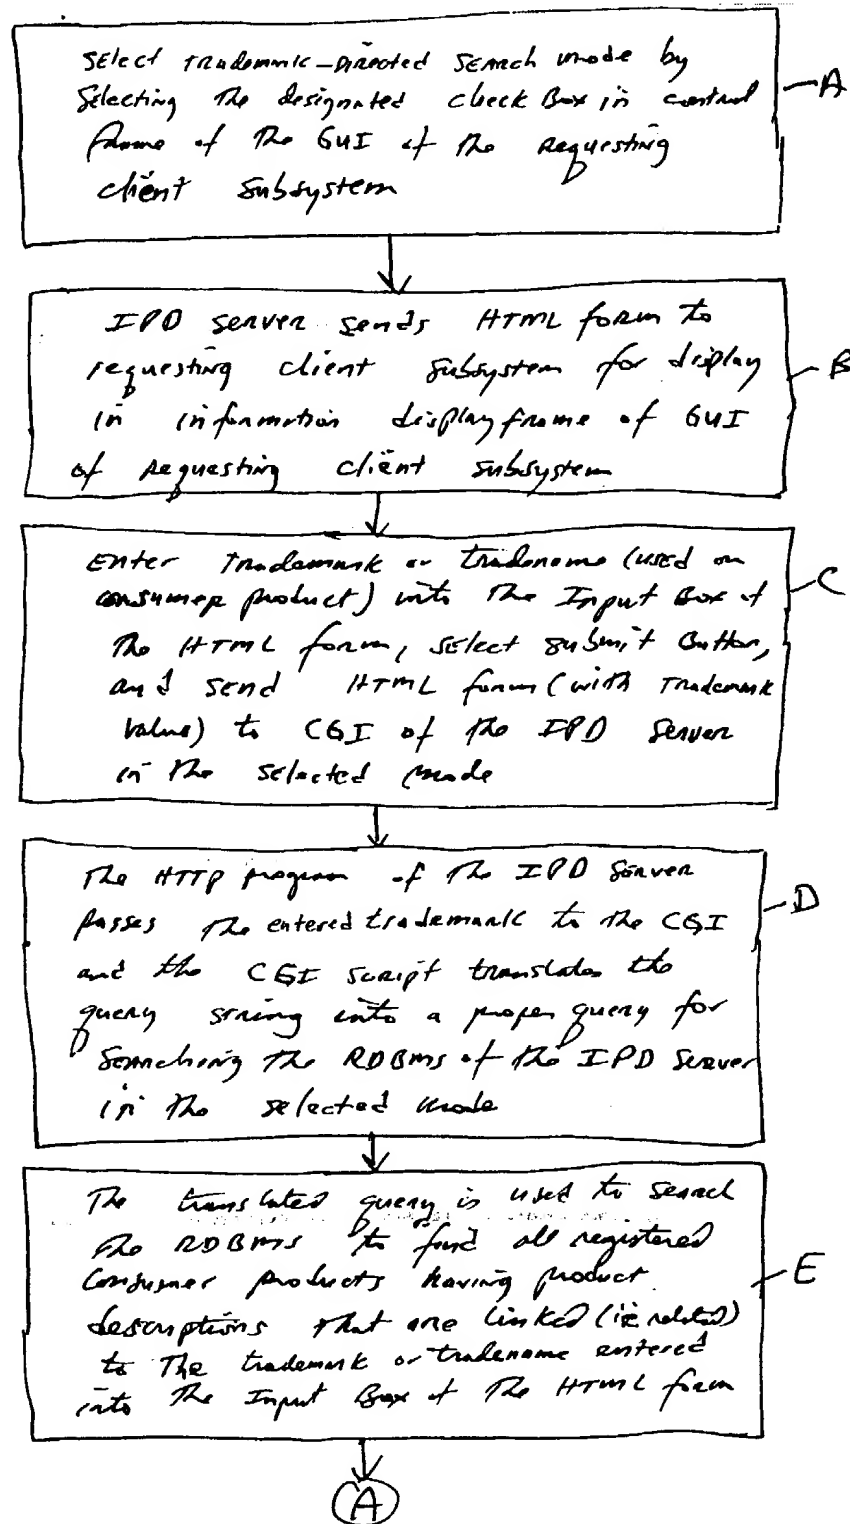 Select Trademark-Directed Search mode by
Selecting the designated check Box in control
frame of the GUI of the requesting
client subsystem
A
IPD server sends HTML form to
requesting client subsystem for display
in information display frame of GUI
of requesting client subsystem
B
Enter Trademark or tradename (used on
consumer product) into the Input Box of
the HTML form, select submit Button,
and send HTML form (with Trademark
value) to CGI of the IPD Server
in the selected mode
C
The HTTP program of the IPD Server
passes the entered trademark to the CGI
and the CGI script translates the
query string into a proper query for
Searching the RDBMS of the IPD Server
in the selected mode
D
The translated query is used to search
the RDBMS to find all registered
Consumer products having product
descriptions that are linked (ie related)
to the trademark or tradename entered
into the Input Box of the HTML form
E
A